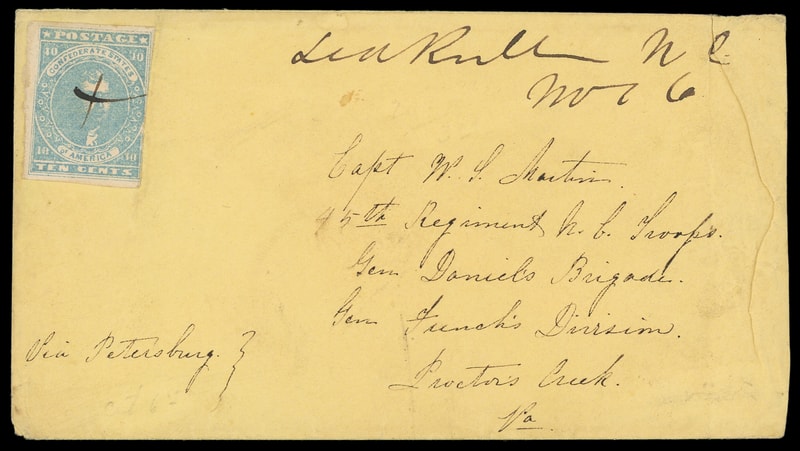 POSTAGE
10 10
CONFEDERATE STATES
OF AMERICA
10 10
TEN CENTS
N C
Nov 6
Capt W. S. Martin.
45th Regiment N. C. Troops.
Gen Daniel's Brigade.
Gen French's Division.
Via Petersburg. }
Proctor's Creek.
Va